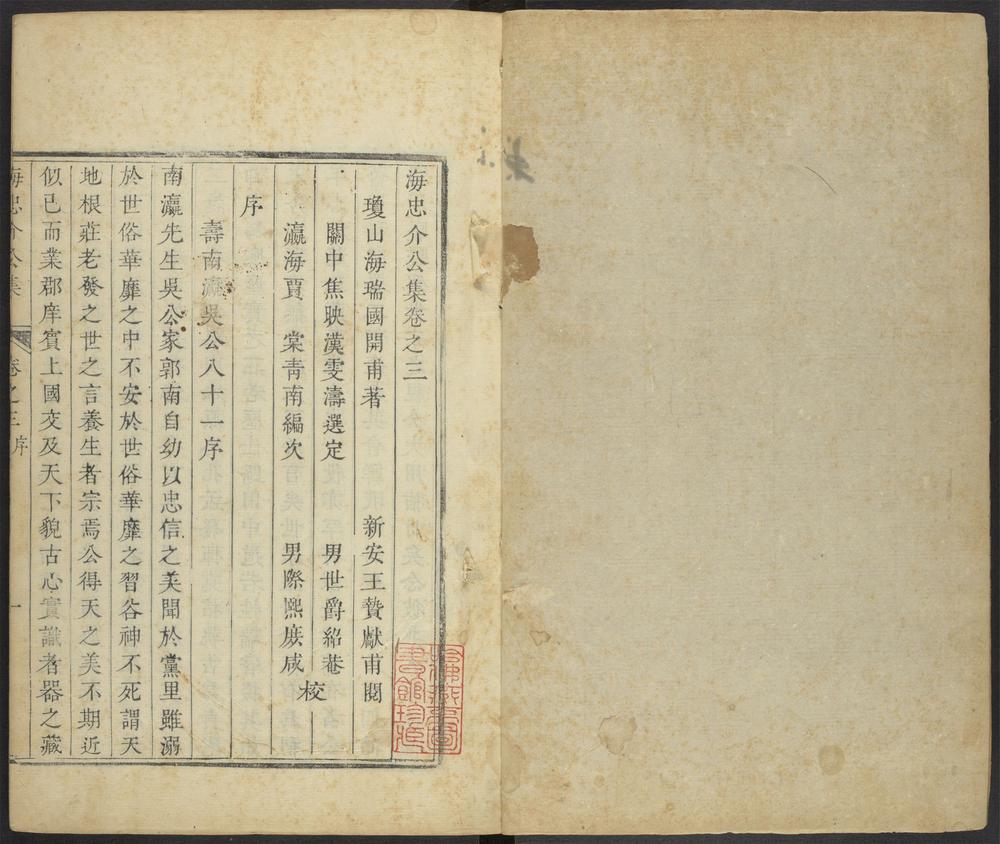 海忠介公集卷之三
瓊山海瑞國開甫著 新安王贄獻甫閱
關中焦映漢雯濤選定 男世爵紹菴
瀛海賈 棠青南編次 男際熙庶咸 校
序
壽南瀛吳公八十一序
南瀛先生吳公家郭南自幼以忠信之美聞於黨里雖溺
於世俗華靡之中不安於世俗華靡之習谷神不死謂天
地根莊老發之世之言養生者宗焉公得天之美不期近
似已而業郡庠賓上國交及天下貌古心實識者器之藏
海忠介公集 卷之三 序 一